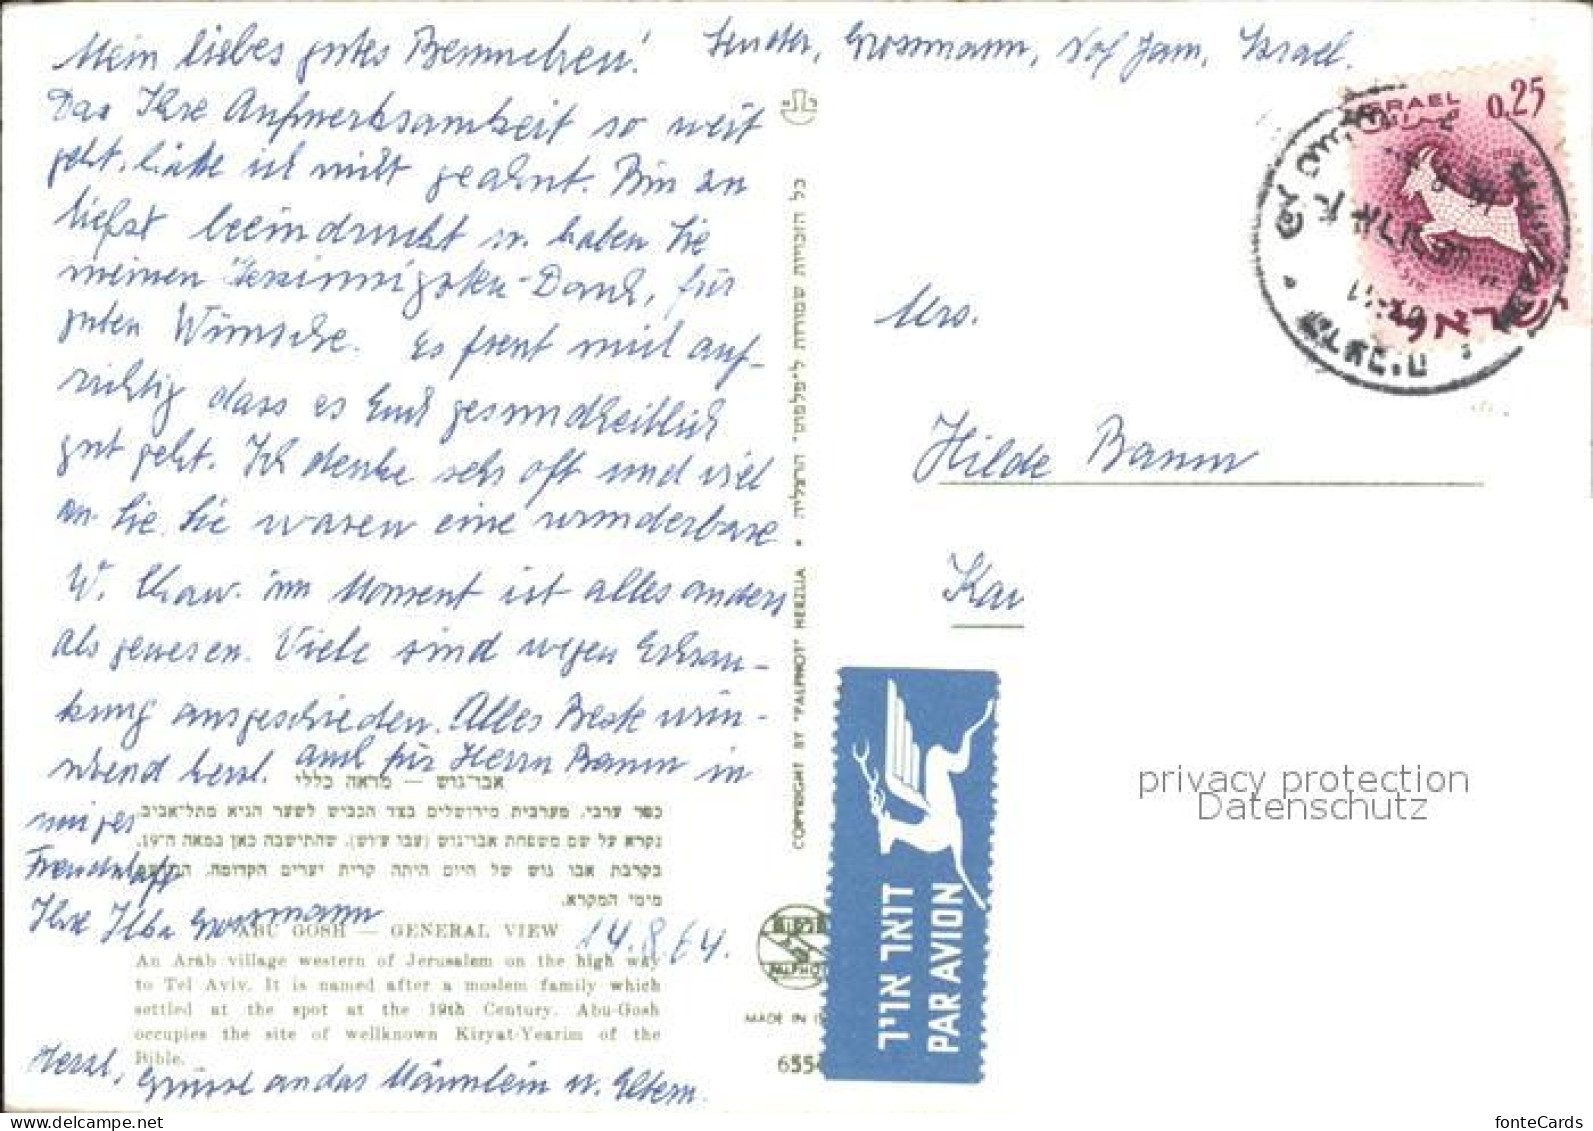 Mein liebes gutes Bemmchen!
Das Ihre Aufmerksamkeit so weit
geht, hätte ich nicht geahnt. Bin zu
tiefst beeindruckt u. haben Sie
meinen herzinnigsten Dank, für
guten Wünsche. Es freut mich auf-
richtig dass es Euch gesundheitlich
gut geht. Ich denke sehr oft und viel
an Sie. Sie waren eine wunderbare
W. im Moment ist alles anders
als gewesen. Viele sind wegen Erkran-
kung ausgeschieden. Alles Beste wün-
schend herzl. auch für Herrn Baum in
inniger
Freundschaft
Ihre Ilka Grossmann
14.8.64.
Herzl. Grüsse an das Männlein u. Eltern.
אבו־גוש — מראה כללי
כפר ערבי, מערבית מירושלים בצד הכביש לשער הגיא מתל־אביב
נקרא על שם משפחת אבו־גוש (עבו עוש), שהתישבה כאן במאה ה־19.
בקרבת אבו גוש של היום היתה קרית יערים הקדומה,
מימי המקרא.
ABU GOSH — GENERAL VIEW
An Arab village western of Jerusalem on the high way
to Tel Aviv. It is named after a moslem family which
settled at the spot at the 19th Century. Abu-Gosh
occupies the site of wellknown Kiryat-Yearim of the
Bible.
כל הזכויות שמורות ל"פלפוט" הרצליה • COPYRIGHT BY "PALPHOT" HERZLIA
פלפוט
PALPHOT
MADE IN IS
655
Sender, Grossmann, Nof Jam, Israel.
ISRAEL
0.25
ישראל
Mrs.
Hilde Baum
Kar
דואר אויר
PAR AVION
privacy protection
Datenschutz
fonteCards